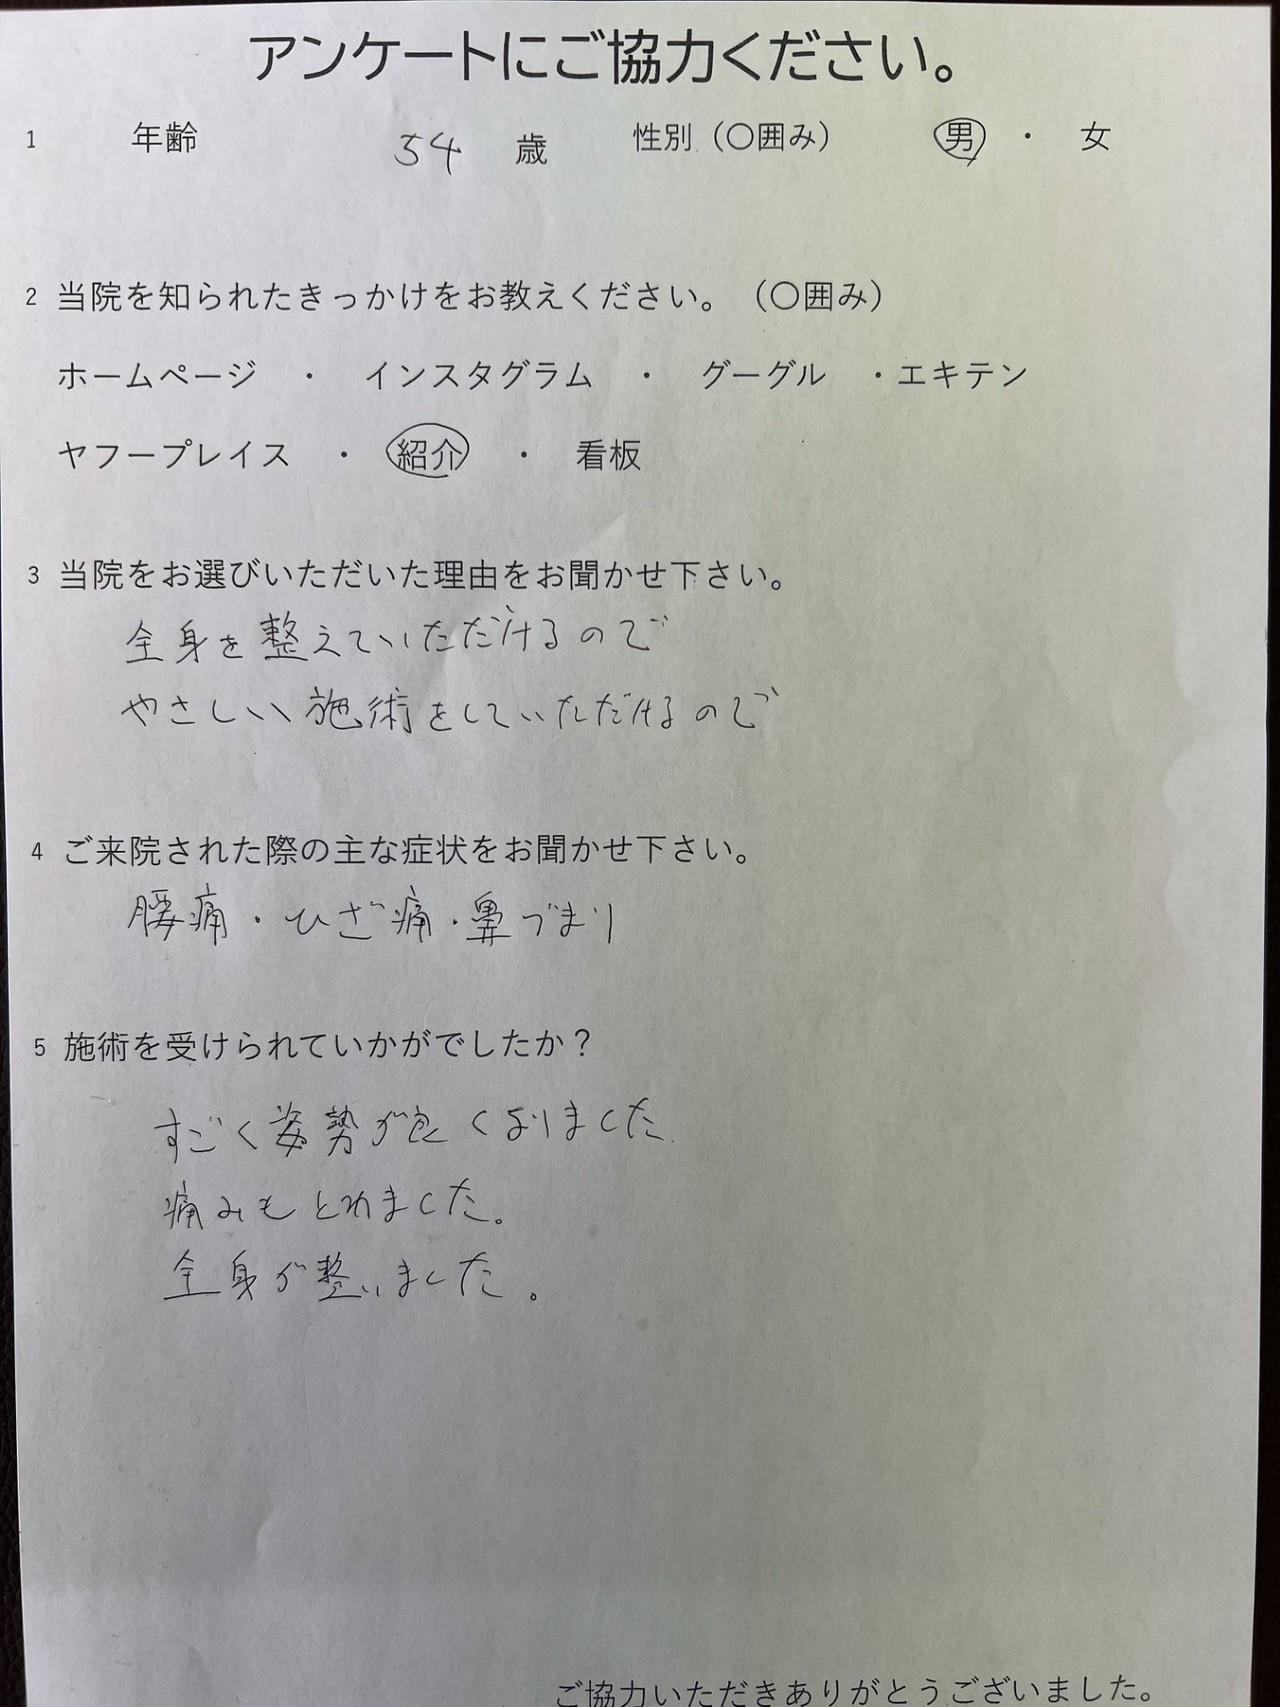 アンケートにご協力ください。
1 年齢 54 歳 性別（〇囲み） 男 ・ 女
2 当院を知られたきっかけをお教えください。（〇囲み）
ホームページ ・ インスタグラム ・ グーグル ・エキテン
ヤフープレイス ・ 紹介 ・ 看板
3 当院をお選びいただいた理由をお聞かせ下さい。
全身を整えていただけるので
やさしい施術をしていただけるので
4 ご来院された際の主な症状をお聞かせ下さい。
腰痛・ひざ痛・鼻づまり
5 施術を受けられていかがでしたか？
すごく姿勢が良くなりました
痛みもとれました。
全身が整いました。
ご協力いただきありがとうございました。